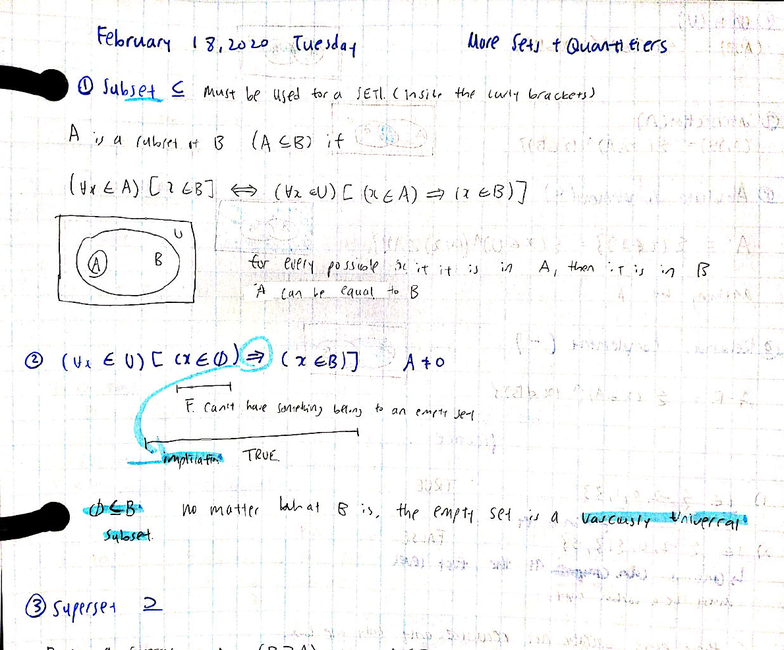 February 18, 2020 Tuesday More Sets + Quantifiers
① Subset ⊆ must be used for a SET! (inside the curly brackets)
A is a subset of B (A ⊆ B) if
(∀x ∈ A) [x ∈ B] ⟺ (∀x ∈ U) [(x ∈ A) ⇒ (x ∈ B)]
U
A B
for every possible x if it is in A, then it is in B
A can be equal to B
② (∀x ∈ U) [(x ∈ ∅) ⇒ (x ∈ B)] A ≠ 0
F. Can't have something belong to an empty set
implication TRUE
∅ ⊆ B no matter what B is, the empty set is a vascously Universal
subset.
③ Superset ⊇
(B ⊇ A)